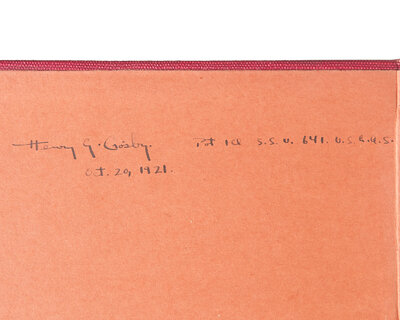 Henry G. Crosby. Pvt 1cl S.S.U. 641. U.S.A.A.S.
Oct. 20, 1921.